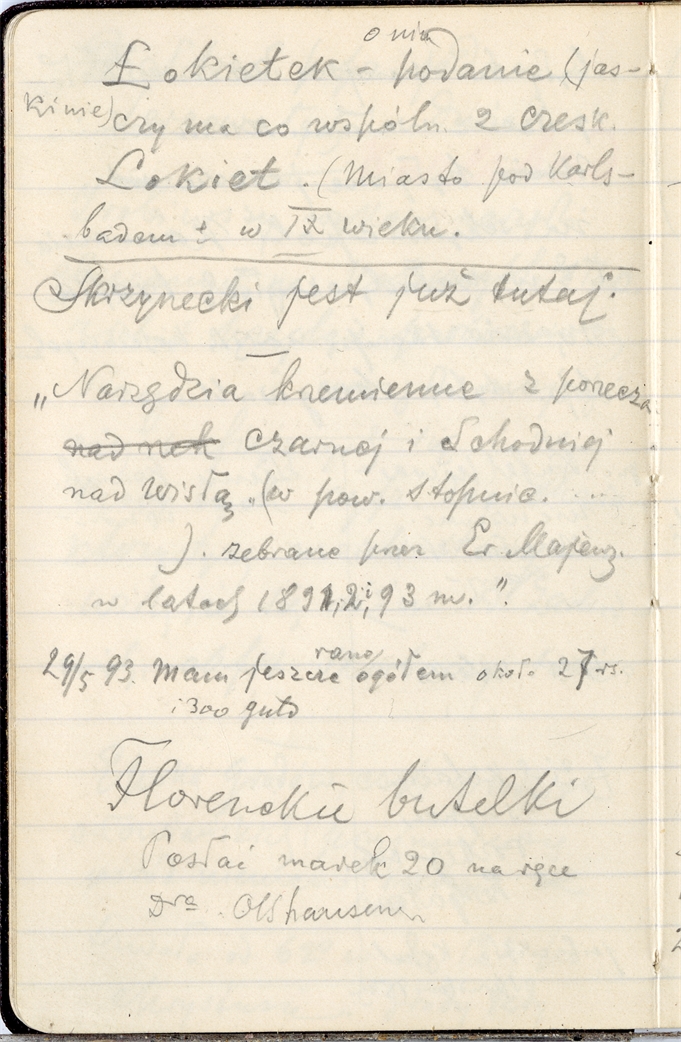 o nim
Łokietek – podanie (jas-
kinie) czy ma co wspóln. z czesk.
Lokiet. (Miasto pod Karls-
badem ± w IX wieku.
Skrzynecki jest już tutaj.
„Narzędzia krzemienne z porzecza
nad nek czarnej i Schodniej
nad Wisłą. (w pow. stopnic. ....
). zebrane przez Er. Majewsk.
w latach 1891, 2, i 93 m.”.
rano
29/5 93. Mam jeszcze ogółem około 27 rs.
i 300 guld
Florenckie butelki
Posłać marek 20 na ręce
Dra Olshausena